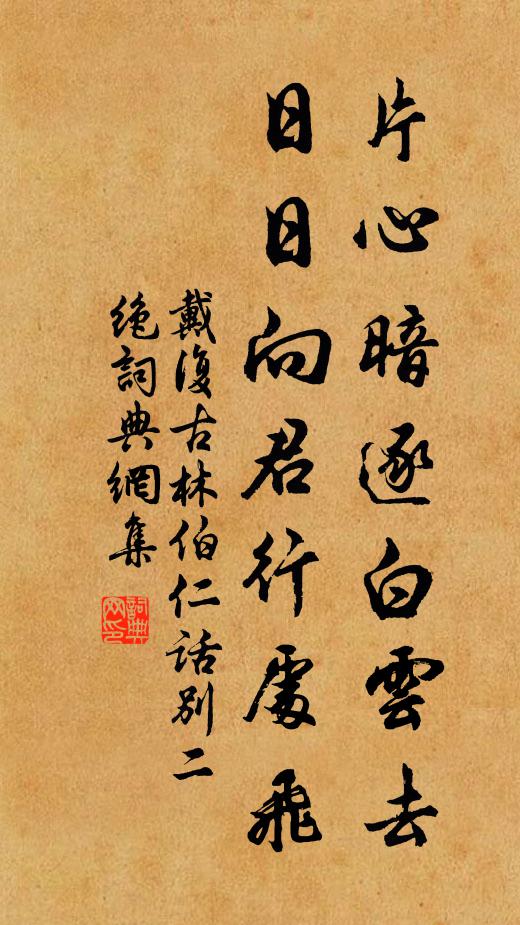 片心暗逐白雲去
日日向君行處飛
戴復古林伯仁話別二
絕詞典網集
詞典網印